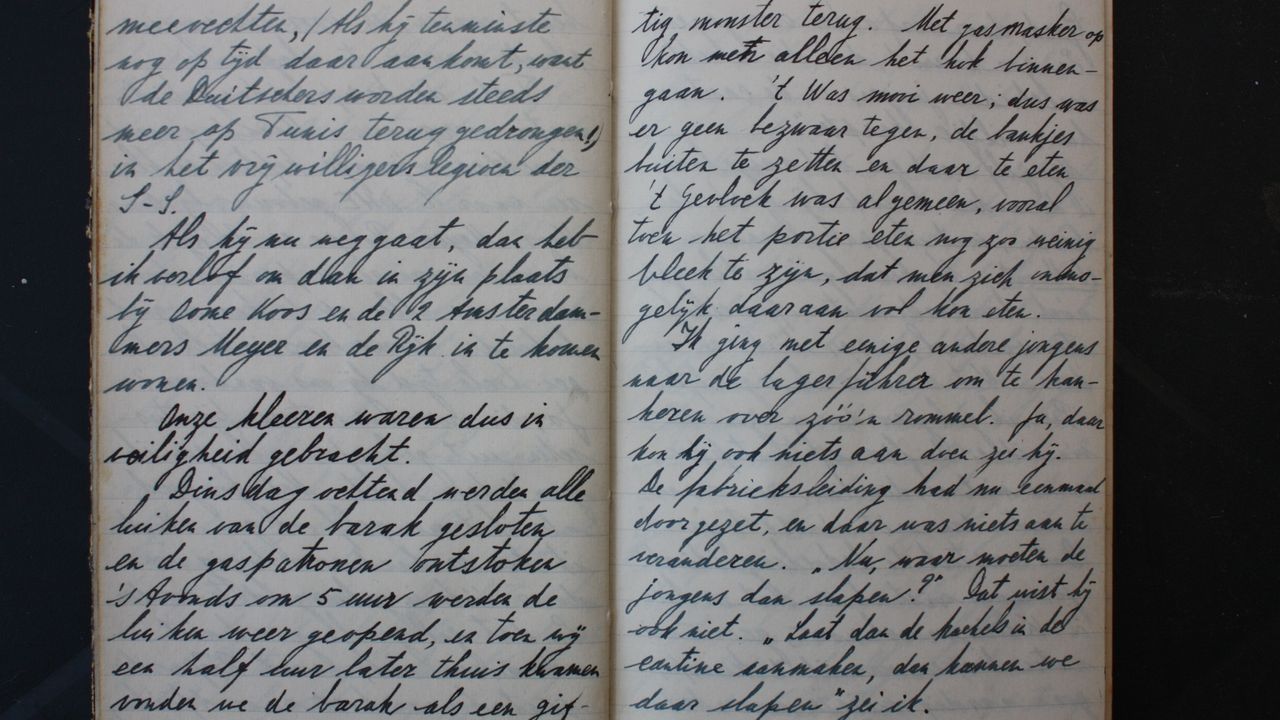 meevechten, (Als hij tenminste
nog op tijd daar aankomt, want
de Duitschers worden steeds
meer op Tunis teruggedrongen!)
in het vrijwilligerslegioen der
S-S.
Als hij nu weggaat, dan heb
ik verlof om dan in zijn plaats
bij Oome Koos en de 2 Amsterdam-
mers Meyer en de Rijk in te komen
wonen.
Onze kleeren waren dus in
veiligheid gebracht.
Dinsdagochtend werden alle
luiken van de barak gesloten
en de gaspatronen ontstoken
's Avonds om 5 uur werden de
luiken weer geopend, en toen wij
een half uur later thuis kwamen
vonden we de barak als een gif-
tig monster terug. Met gasmasker op
kon men alleen het hok binnen-
gaan. 't Was mooi weer; dus was
er geen bezwaar tegen, de bankjes
buiten te zetten en daar te eten
't Gevloek was algemeen, vooral
toen het portie eten nog zoo weinig
bleek te zijn, dat men zich onmo-
gelijk daaraan vol kon eten.
Ik ging met eenige andere jongens
naar de lagerführer om te kan-
keren over zóó'n rommel. Ja, daar
kon hij ook niets aan doen zei hij.
De fabrieksleiding had nu eenmaal
doorgezet, en daar was niets aan te
veranderen. „Nu, waar moeten de
jongens dan slapen?" Dat wist hij
ook niet. „Laat dan de kachels in de
cantine aanmaken, dan kunnen we
daar slapen" zei ik.